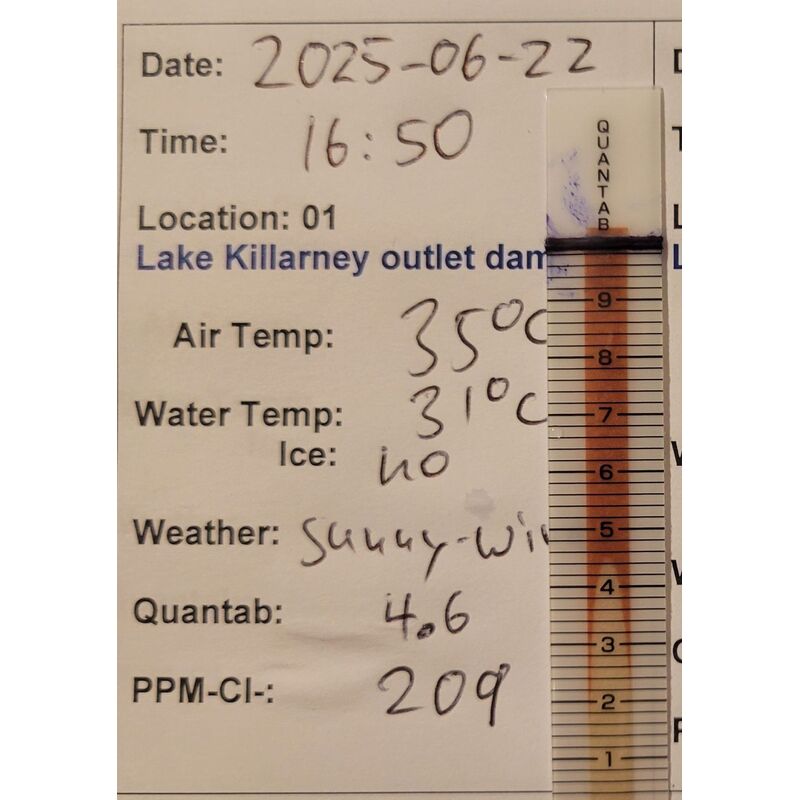 Date: 2025-06-22
Time: 16:50
Location: 01
Lake Killarney outlet dam
Air Temp: 35°C
Water Temp: 31°C
Ice: no
Weather: Sunny-Win
Quantab: 4.6
PPM-Cl-: 209
QUANTAB
9
8
7
6
5
4
3
2
1